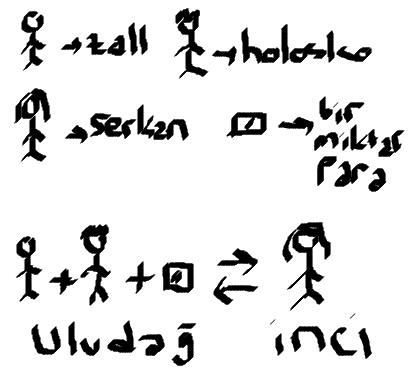 zall
holosko
serkan
bir
miktar
para
uludağ
inci